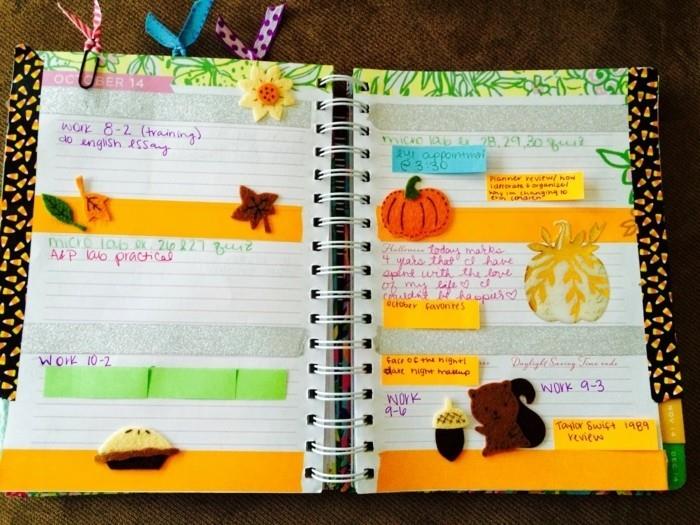 OCTOBER 14
Work 8-2 (training)
do english essay
micro lab ex. 26 & 27 quiz
A&P lab practical
Work 10-2
micro lab ex. 28, 29, 30 quiz
eye appointment
@ 3:30
Planner review/how
i decorate & organize/
why im changing to
erin condren
Halloween today marks
4 years that I have
spent with the love
of my life ♡ I
couldn't be happier ♡
October favorites
Face of the night/
date night makeup
Daylight Saving Time ends
Work
9-6
Work 9-3
Taylor Swift 1989
review
NOV 14
DEC 14